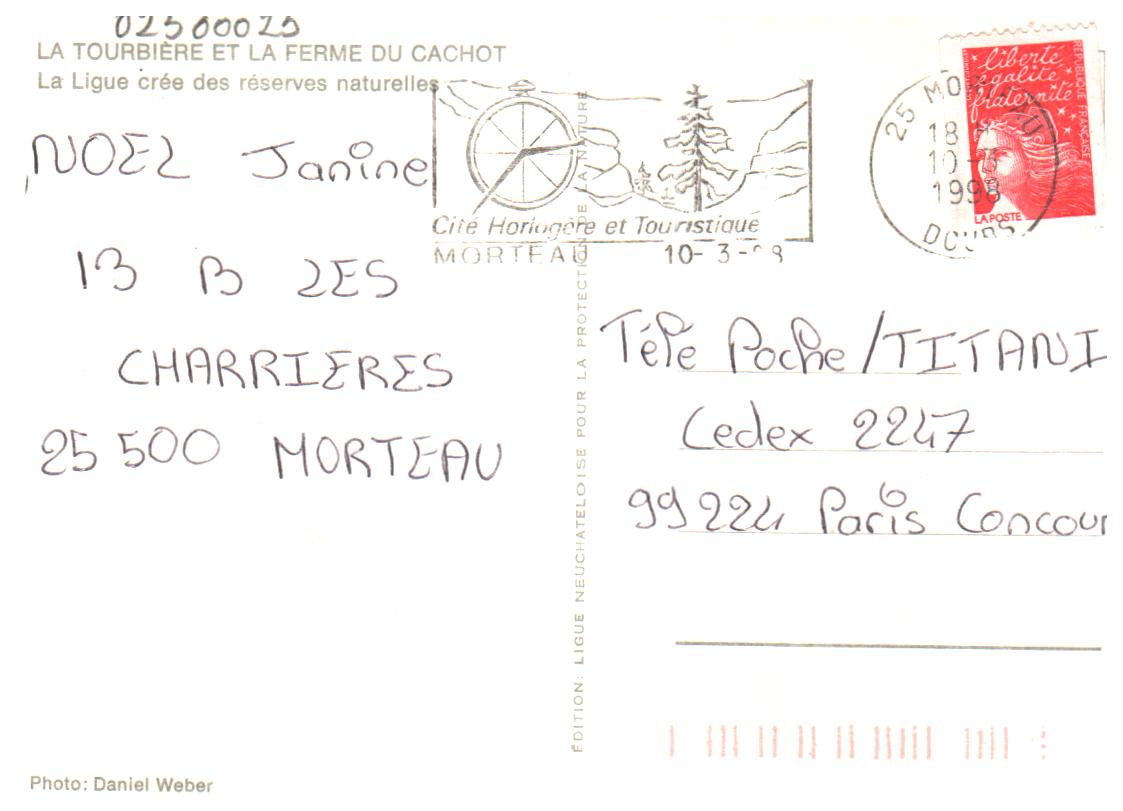 02500025
LA TOURBIÈRE ET LA FERME DU CACHOT
La Ligue crée des réserves naturelles
NOEL Janine
13 B LES
CHARRIERES
25 500 MORTEAU
Photo: Daniel Weber
Cité Horlogère et Touristique
MORTEAU 10-3-98
ÉDITION: LIGUE NEUCHATELOISE POUR LA PROTECTION DE LA NATURE
25 MORTEAU
18
10-3
1998
DOUBS
liberté
égalité
fraternité
RÉPUBLIQUE FRANÇAISE
LA POSTE
Télé Poche/TITANI
Cedex 2247
99224 Paris Concour